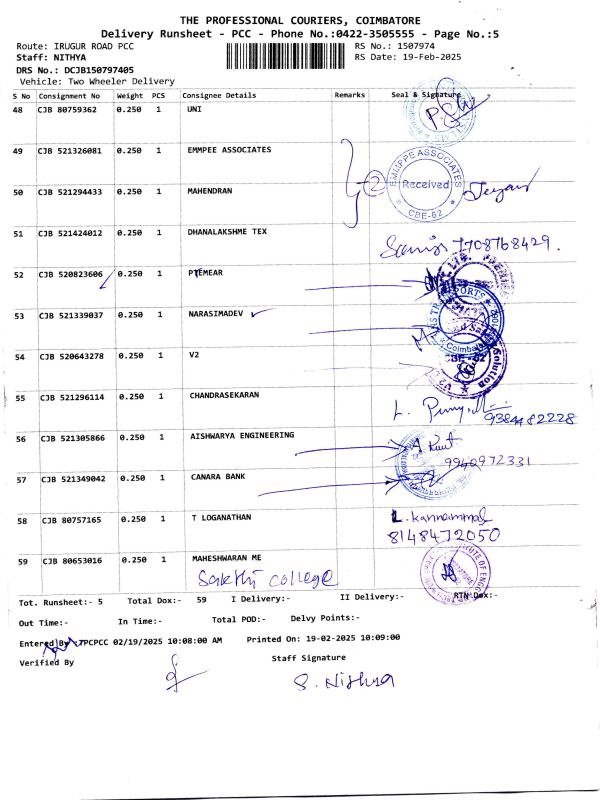 THE PROFESSIONAL COURIERS, COIMBATORE
Delivery Runsheet - PCC - Phone No.:0422-3505555 - Page No.:5
Route: IRUGUR ROAD PCC
RS No.: 1507974
Staff: NITHYA
RS Date: 19-Feb-2025
DRS No.: DCJB150797405
Vehicle: Two Wheeler Delivery
S No Consignment No Weight PCS Consignee Details Remarks Seal & Signature
48 CJB 80759362 0.250 1 UNI
49 CJB 521326081 0.250 1 EMMPEE ASSOCIATES
EMMPPE ASSOCIATES
Received
CBE-62
2
50 CJB 521294433 0.250 1 MAHENDRAN
51 CJB 521424012 0.250 1 DHANALAKSHME TEX
7708768429.
52 CJB 520823606 0.250 1 PTEMEAR
53 CJB 521339037 0.250 1 NARASIMADEV
54 CJB 520643278 0.250 1 V2
Solution
55 CJB 521296114 0.250 1 CHANDRASEKARAN
9384482228
56 CJB 521305866 0.250 1 AISHWARYA ENGINEERING
9940972331
57 CJB 521349042 0.250 1 CANARA BANK
58 CJB 80757165 0.250 1 T LOGANATHAN
L. Kannammal
8148472050
59 CJB 80653016 0.250 1 MAHESHWARAN ME
Sakthi college
Tot. Runsheet:- 5 Total Dox:- 59 I Delivery:- II Delivery:- RTN Dox:-
Out Time:- In Time:- Total POD:- Delvy Points:-
Entered By TPCPCC 02/19/2025 10:08:00 AM Printed On: 19-02-2025 10:09:00
Verified By Staff Signature
S. Nithya